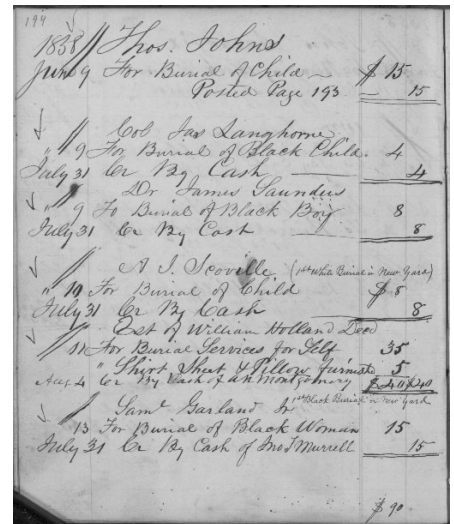 194
1838 Thos. Johns
June 9 For Burial of Child $15
Posted Page 193 15
Col Jas Langhorne
" 9 For Burial of Black Child. 4
July 31 Cr By Cash 4
Dr James Saunders
" 9 To Burial of Black Boy 8
July 31 Cr By Cash 8
A. J. Scoville (1st White Burial in New Yard)
" 10 For Burial of Child $8
July 31 Cr By Cash 8
Est of William Holland Decd
" 11 For Burial Services for Self 35
" Shirt Sheet & Pillow furnished 5
Aug 4 Cr By Cash of Montgomery $40 $40
Saml Garland Sr. 1st Black Burial in New Yard
13 For Burial of Black Woman 15
July 31 Cr By Cash of Jno J Murrell 15
$90